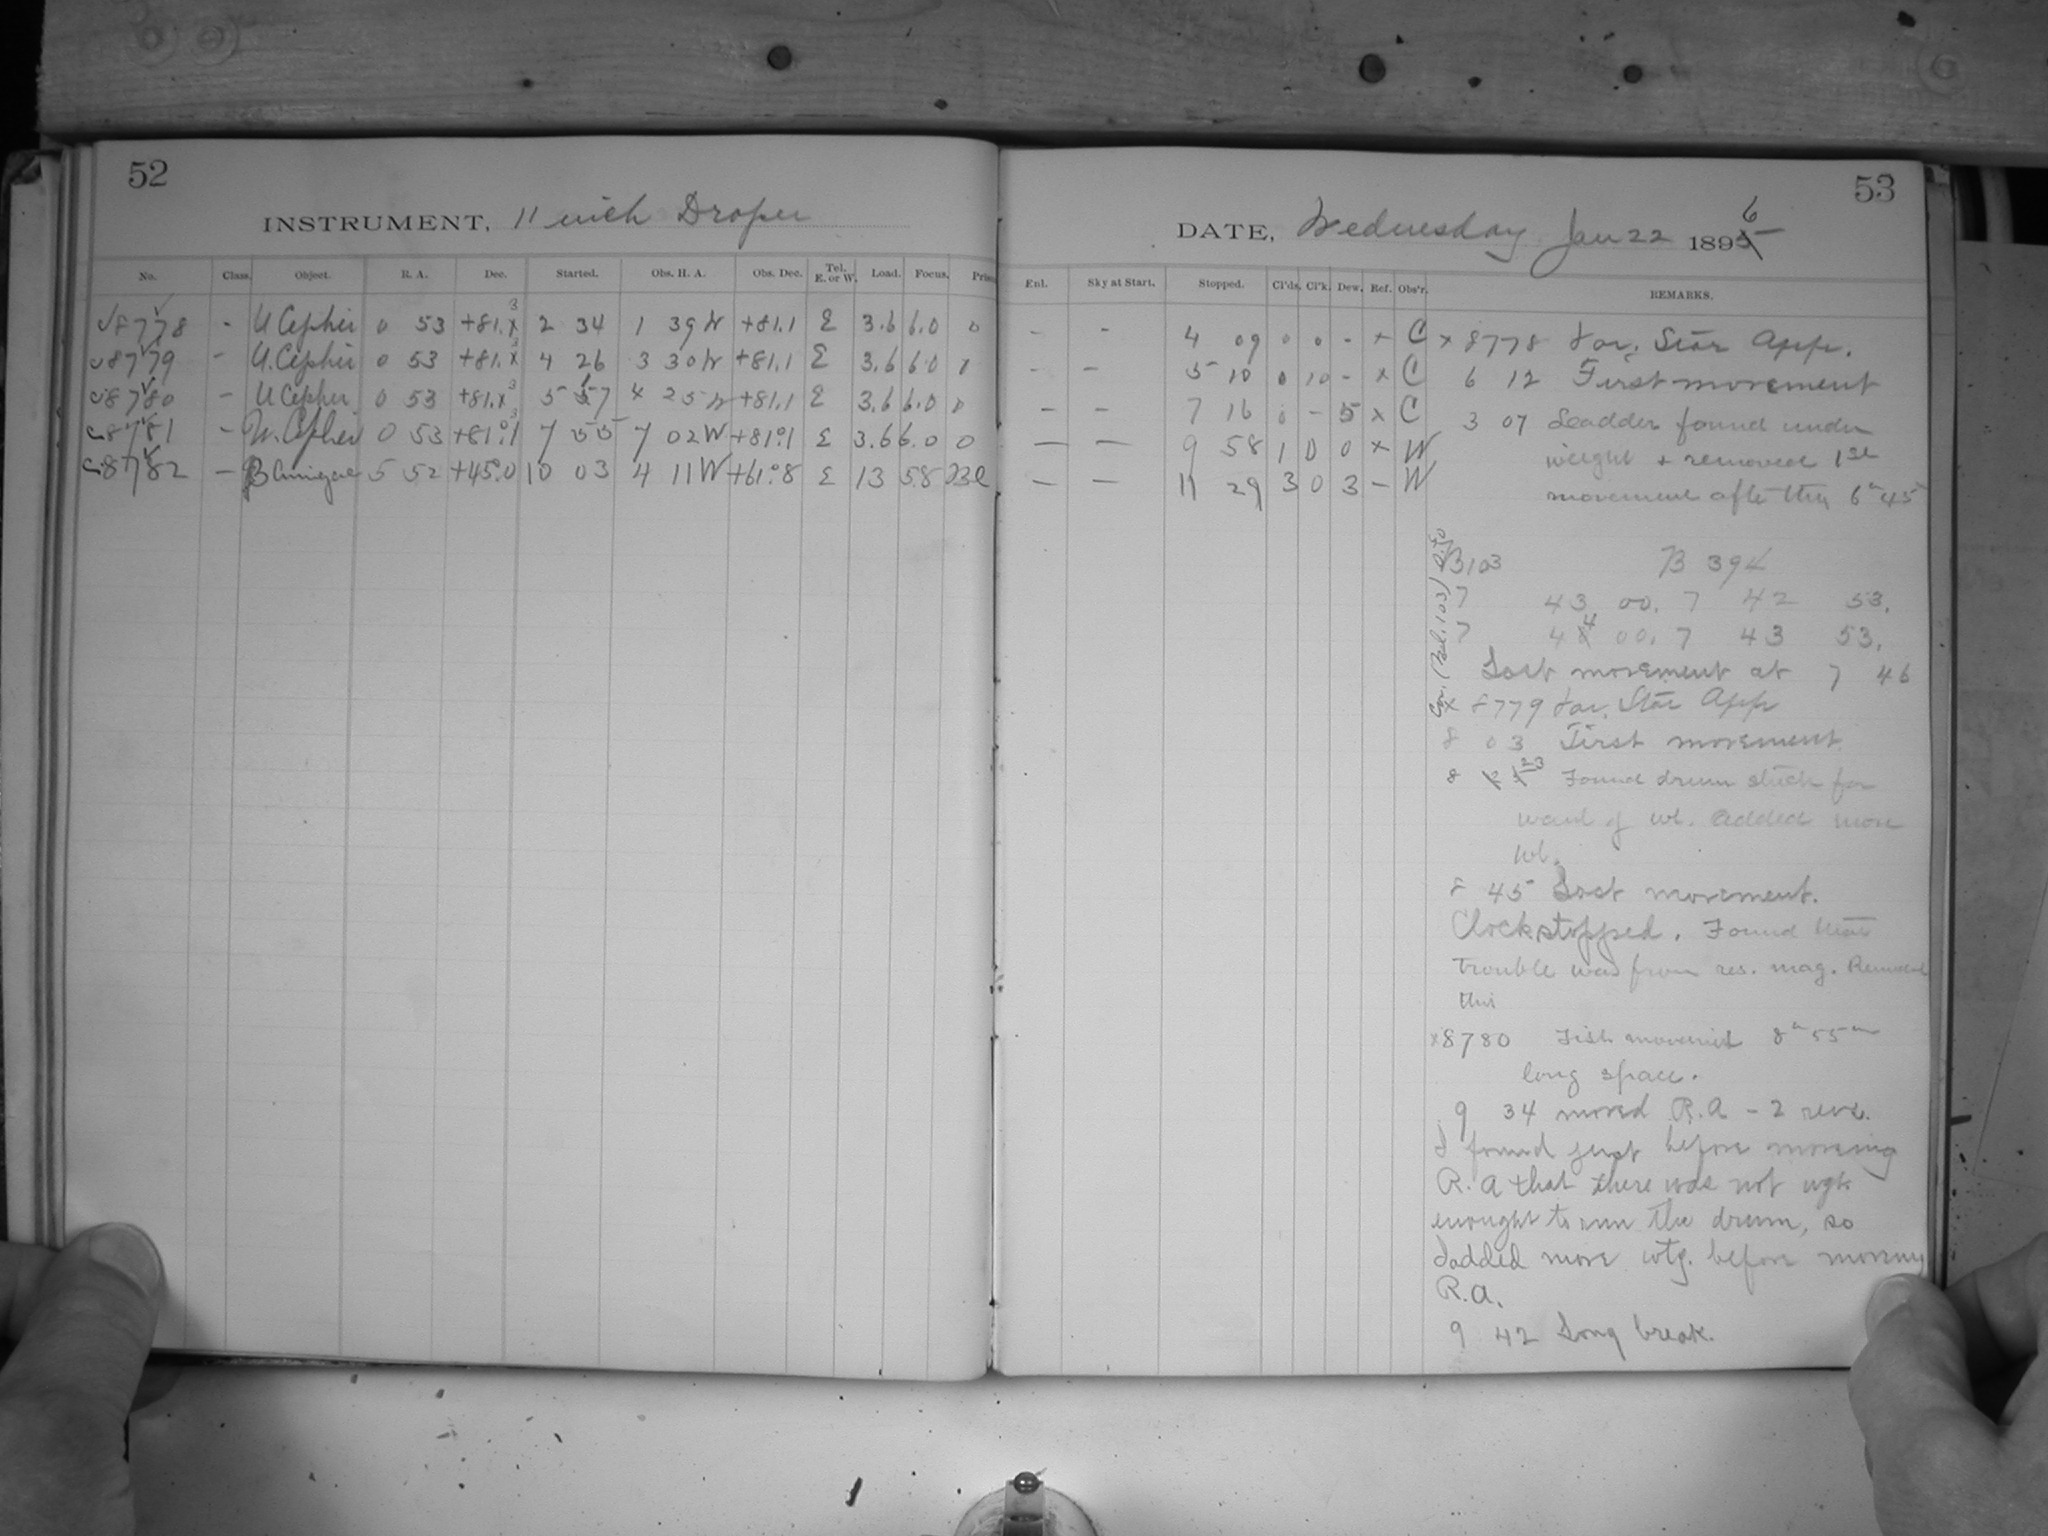 52
INSTRUMENT, 11 inch Draper
No. Class. Object. R. A. Dec. Started. Obs. H. A. Obs. Dec. Tel. E. or W. Load. Focus. Prism
8778 - U Cephei 0 53 +81. 2 34 1 39 W +81.1 E 3.6 6.0 0
8779 - U. Cephei 0 53 +81. 4 26 3 30 W +81.1 E 3.6 6.0
8780 - U Cephei 0 53 +81. 5 57 4 25 W +81.1 E 3.6 6.0 0
8781 - U. Cephei 0 53 +81.1 7 55 7 02 W +81.1 E 3.6 6.0 0
8782 - 5 52 +45.0 10 03 4 11 W +61.8 E 13 5.8
53
DATE, Wednesday Jan 22 1896
Enl. Sky at Start. Stopped. Cl'ds. Cl'k. Dew. Ref. Obs'r. REMARKS.
- - 4 09 0 0 - x C
- - 5 10 0 10 - x C
- - 7 16 0 - 5 x C
- - 9 58 1 0 0 x W
- - 11 29 3 0 3 - W
x 8778 Var. Star App.
6 12 First movement
3 07 Ladder found under
weight + removed 1st
movement after this 6h 45
B 103 B 394
7 43 00. 7 42 53.
7 44 00. 7 43 53.
Last movement at 7 46
x 8779 Var. Star App
8 03 First movement
8 23 Found drum stuck for
want of wt. Added more
wt.
8 45 Last movement.
Clock stopped. Found that
trouble was from res. mag. Removed
this
x8780 First movement 8h 55m
long space.
9 34 moved R.A - 2 revs.
I found just before moving
R.A that there was not wgt.
enought to run the drum, so
I added more wtg. before moving
R.A.
9 42 Long break.